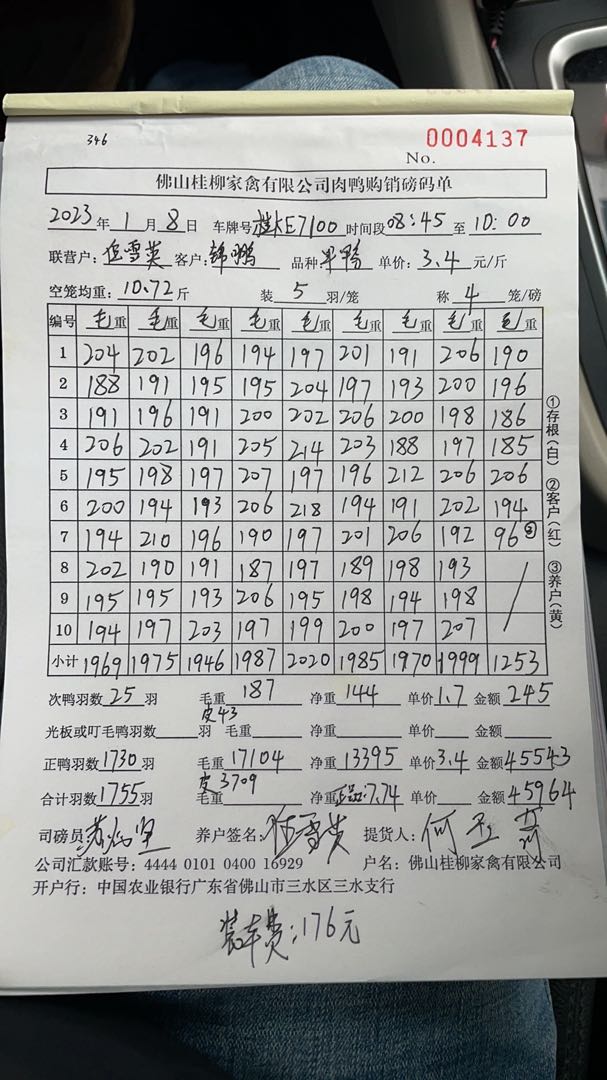 346
0004137
No.
佛山桂柳家禽有限公司肉鸭购销磅码单
2023年1月8日 车牌号桂KE7100时间段08:45至10:00
联营户:伍雪英 客户:锦鹏 品种:半鸭 单价:3.4元/斤
空笼均重:10.72斤 装5羽/笼 称4笼/磅
编号 毛重 毛重 毛重 毛重 毛重 毛重 毛重 毛重 毛重
1 204 202 196 194 197 201 191 206 190
2 188 191 195 195 204 197 193 200 196
3 191 196 191 200 202 206 200 198 186
4 206 202 191 205 214 203 188 197 185
5 195 198 197 207 197 196 212 206 206
6 200 194 193 206 218 194 191 202 194
7 194 210 196 190 197 201 206 192 96②
8 202 190 191 187 197 189 198 193
9 195 195 193 206 195 198 194 198
10 194 197 203 197 199 200 197 207
小计 1969 1975 1946 1987 2020 1985 1970 1999 1253
次鸭羽数25羽 毛重187 净重144 单价1.7 金额245
皮43
光板或叮毛鸭羽数 羽 毛重 净重 单价 金额
正鸭羽数1730羽 毛重17104 净重13395 单价3.4 金额45543
皮3709
合计羽数1755羽 毛重 净重正品:7.74 单价 金额45964
司磅员: 养户签名:伍雪英 提货人:何
公司汇款账号:4444 0101 0400 16929 户名:佛山桂柳家禽有限公司
开户行:中国农业银行广东省佛山市三水区三水支行
装车费:176元
①存根(白) ②客户(红) ③养户(黄)